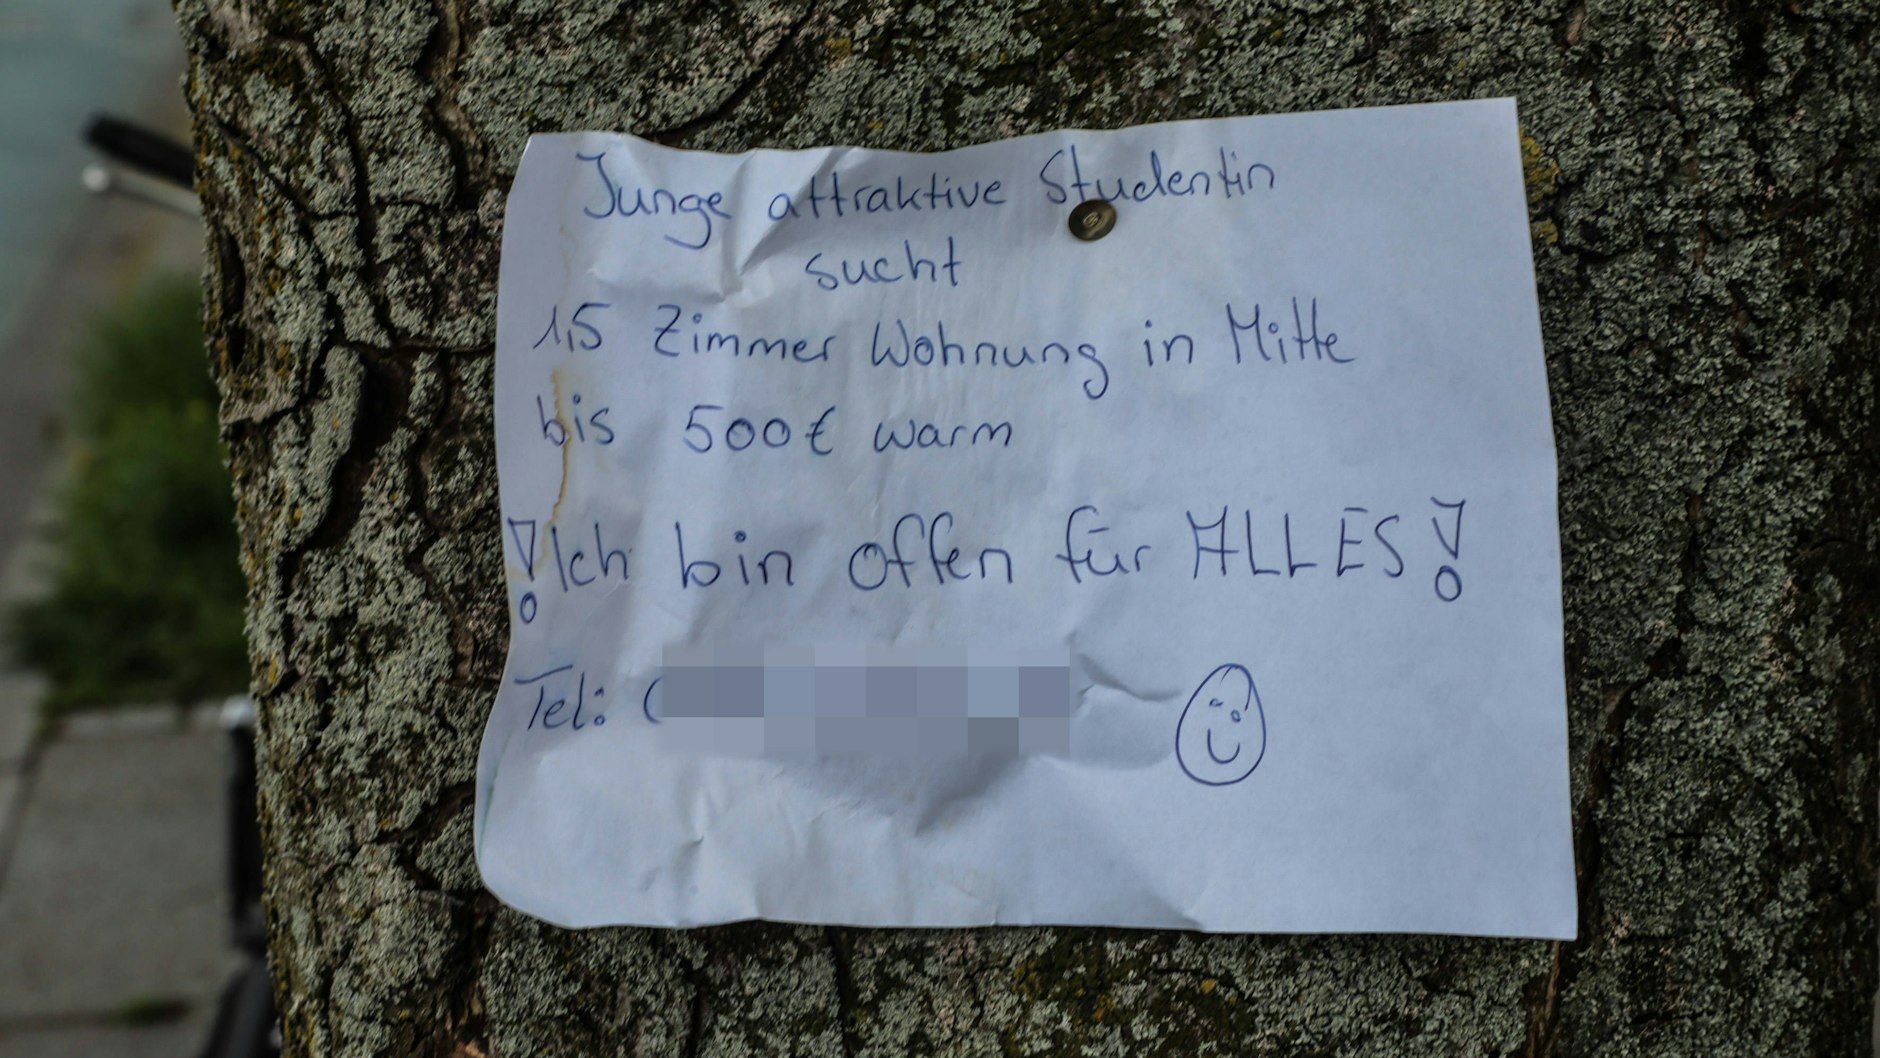 Junge attraktive Studentin
sucht
1,5 Zimmer Wohnung in Mitte
bis 500€ warm
!Ich bin offen für ALLES!
Tel: (